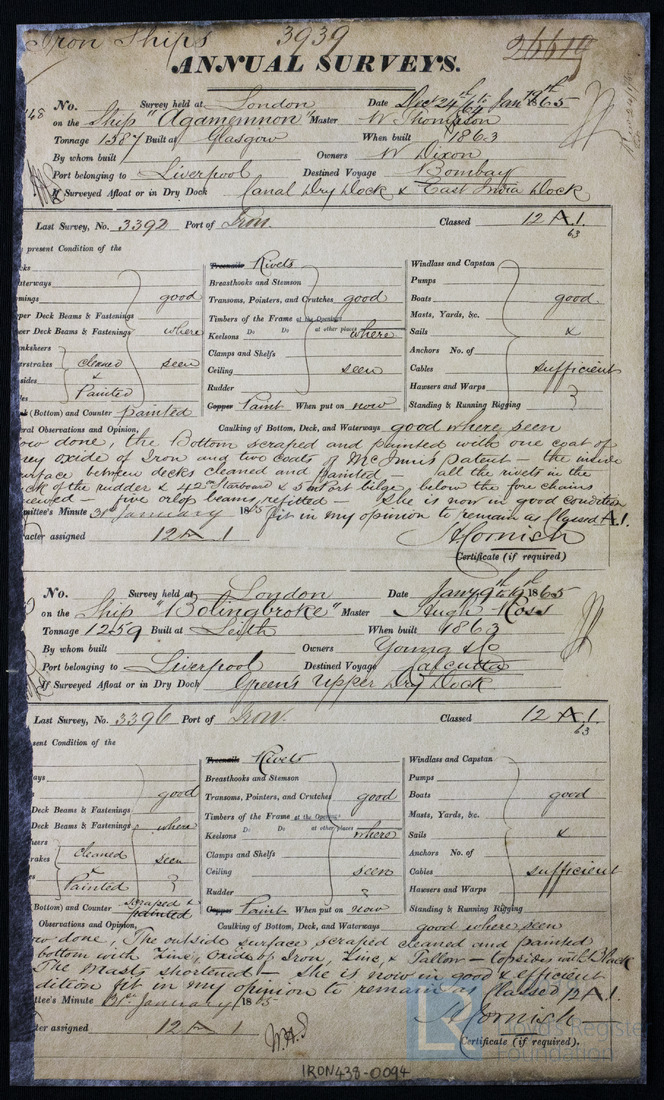 Iron Ships 3939 26619
ANNUAL SURVEYS.
No. Survey held at London Date Decr 24th /64 to Jany 19th 1865
on the Ship "Agamemnon" Master W Thompson
Tonnage 1387 Built at Glasgow When built 1863
By whom built Owners W Dixon
Port belonging to Liverpool Destined Voyage Bombay
If Surveyed Afloat or in Dry Dock Canal Dry Dock & East India Dock
Last Survey, No. 3392 Port of Iron. Classed 12 A.1.
63
present Condition of the
Treenails Rivets
Windlass and Capstan
Breasthooks and Stemson
Pumps
Transoms, Pointers, and Crutches good
Boats good
Timbers of the Frame at the Openings
Masts, Yards, &c.
Keelsons Do Do at other places where
Sails &
Clamps and Shelfs
Anchors No. of
Ceiling seen
Cables sufficient
Rudder
Hawsers and Warps
Copper Paint When put on now
Standing & Running Rigging
aterways
mings good
per Deck Beams & Fastenings
wer Deck Beams & Fastenings where
nksheers
erstrakes cleaned seen
sides &
Painted
(Bottom) and Counter painted
ral Observations and Opinion, Caulking of Bottom, Deck, and Waterways good where seen
ow done, the Bottom scraped and painted with one coat of
ey oxide of Iron and two coats of McInnis Patent – the inside
urface between decks cleaned and painted all the rivets in the
ck of the rudder & 42 Starboard & 5 in Port bilge, below the fore chains
ewed – five orlop beams refitted She is now in good condition
mittee's Minute 31st January 1865 fit in my opinion to remain as Classed A.1.
acter assigned 12 A 1 H Cornish
Certificate (if required)
No. Survey held at London Date Jany 1865
on the Ship "Bolingbroke" Master Hugh Ross
Tonnage 1259 Built at Leith When built 1863
By whom built Owners Young & Co
Port belonging to Liverpool Destined Voyage Calcutta
If Surveyed Afloat or in Dry Dock Green's Upper Dry Dock
Last Survey, No. 3396 Port of Iron. Classed 12 A.1.
63
sent Condition of the
Treenails Rivets
Windlass and Capstan
Breasthooks and Stemson
Pumps
Transoms, Pointers, and Crutches good
Boats good
Timbers of the Frame at the Openings
Masts, Yards, &c.
Keelsons Do Do at other places where
Sails &
Clamps and Shelfs
Anchors No. of
Ceiling seen
Cables sufficient
Rudder
Hawsers and Warps
Copper Paint When put on now
Standing & Running Rigging
ays
good
Deck Beams & Fastenings
Deck Beams & Fastenings where
eers
rakes cleaned seen
&
Painted
Bottom) and Counter scraped & painted
Observations and Opinion, Caulking of Bottom, Deck, and Waterways good where seen
ow done, The outside surface scraped cleaned and painted
bottom with Zinc, Oxide of Iron, Zinc, & Tallow – topsides with Black
The Masts shortened – She is now in good & efficient
dition fit in my opinion to remain as Classed 12 A.1.
ttee's Minute 31st January 1865
ter assigned 12 A 1 H Cornish
Certificate (if required).
Lloyd's Register
Foundation
IRON438-0094